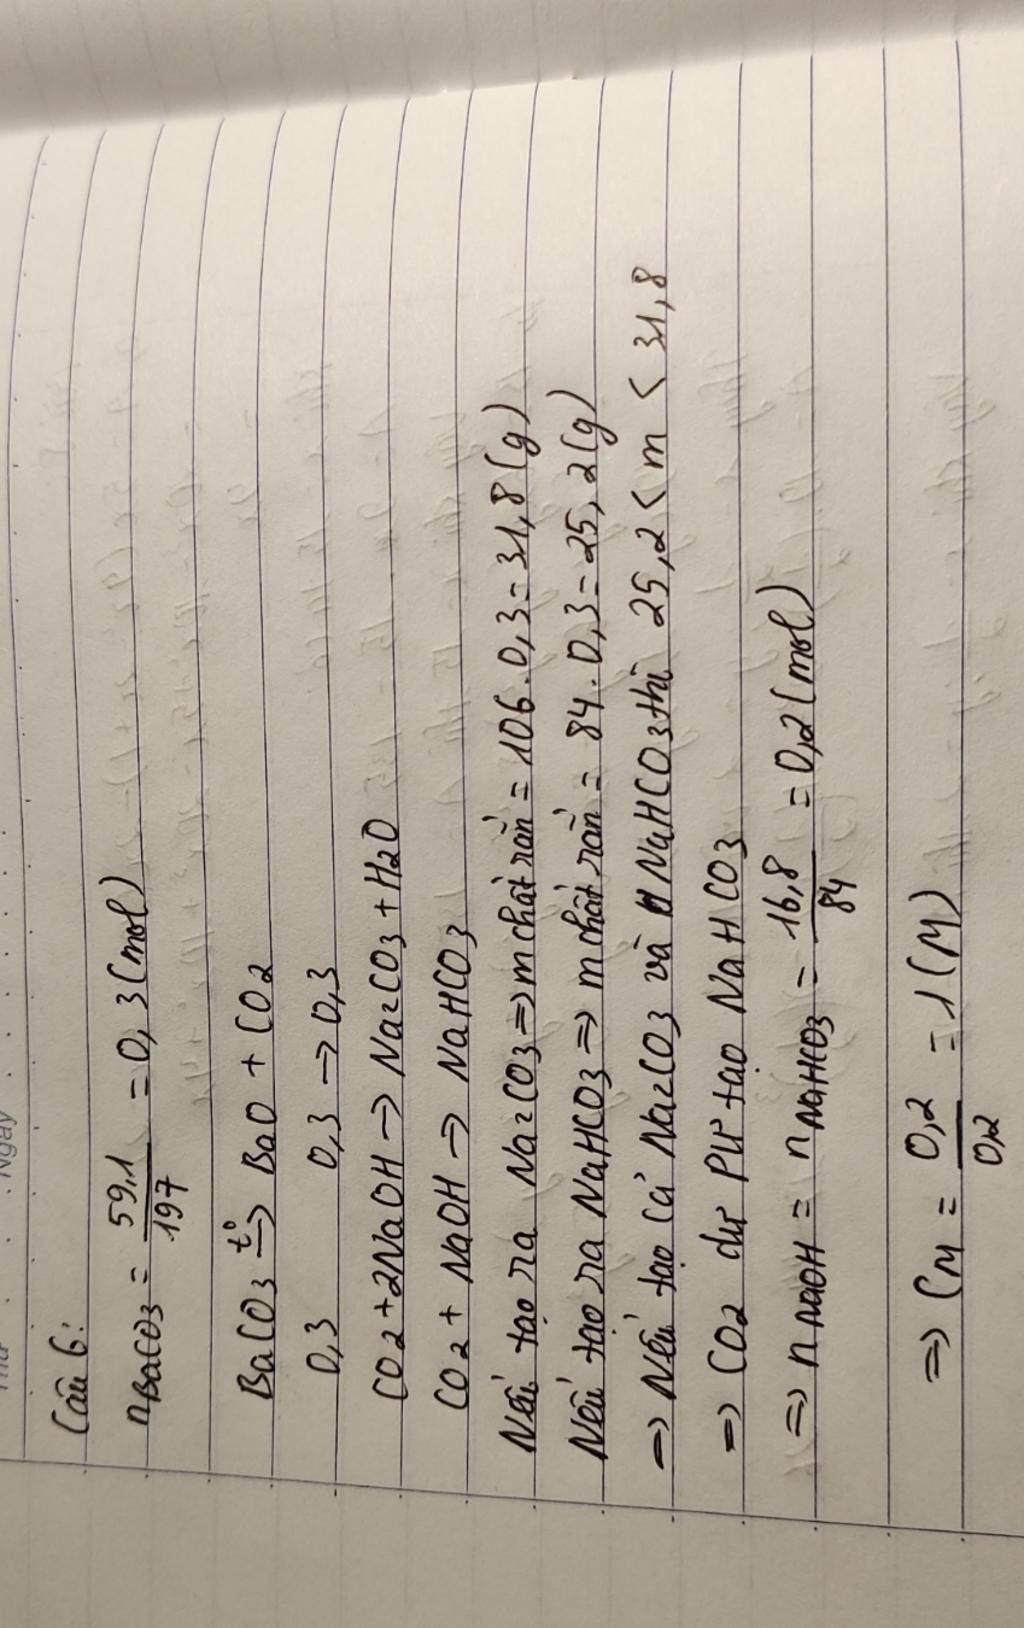 Ngày
Câu 6:
nBaCO3 = 59,1/197 = 0,3 (mol)
BaCO3 t°→ BaO + CO2
0,3 0,3 → 0,3
CO2 + 2NaOH → Na2CO3 + H2O
CO2 + NaOH → NaHCO3
Nếu tạo ra Na2CO3 => m chất rắn = 106 . 0,3 = 31,8 (g)
Nếu tạo ra NaHCO3 => m chất rắn = 84 . 0,3 = 25,2 (g)
=> Nếu tạo cả Na2CO3 và NaHCO3 thì 25,2 < m < 31,8
=> CO2 dư PƯ tạo NaHCO3
=> nNaOH = nNaHCO3 = 16,8/84 = 0,2 (mol)
=> CM = 0,2/0,2 = 1 (M)